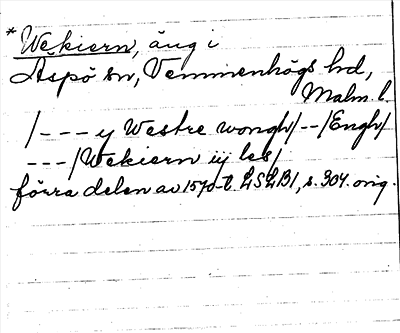 *Wekiern, äng i
Äspö sn, Vemmenhögs hd,
Malm. l.
/--- y Westre wongh/--/Engh/
---/Wekiern iij les/
förra delen av 1570-t. LSLB1, s. 304. orig.